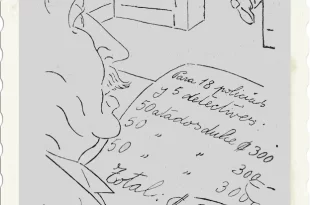 Para 18 policias
y 5 detectives:
50 atados duke ₡ 300
50 " " 300-
50 " " 300-
Total: ₡